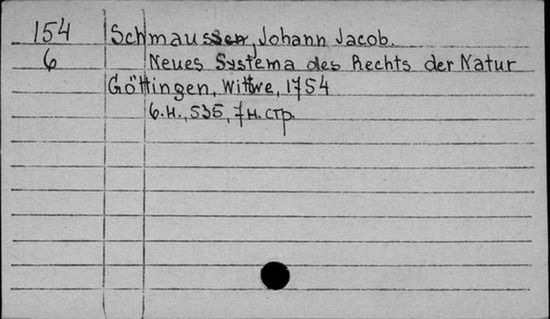 154 Schmaussen, Johann Jacob.
6 Neues Systema des Rechts der Natur
Göttingen, Wittwe, 1754
6.н., 535, 7н. стр.